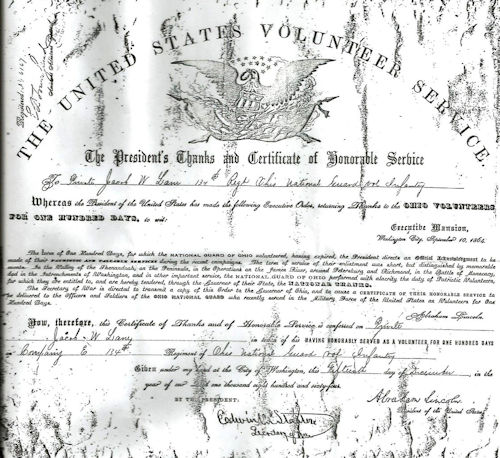 THE UNITED STATES VOLUNTEER SERVICE.
The President's Thanks and Certificate of Honorable Service
To Private Jacob W. 134th Regt Ohio National Guard Vol Infantry
Whereas the President of the United States has made the following Executive Order, returning Thanks to the OHIO VOLUNTEERS,
FOR ONE HUNDRED DAYS, to wit:
EXECUTIVE MANSION,
Washington City, September 10, 1864.
The term of One Hundred Days, for which the NATIONAL GUARD OF OHIO volunteered, having expired, the President directs an Official Acknowledgment to be
made of their PATRIOTIC AND VALUABLE SERVICES during the recent campaigns. The term of service of their enlistment was short, but distinguished by memorable
events. In the Valley of the Shenandoah, on the Peninsula, in the Operations on the James River, around Petersburg and Richmond, in the Battle of Monocacy,
and in the Intrenchments of Washington, and in other important service, the NATIONAL GUARD OF OHIO performed with alacrity the duty of Patriotic Volunteers,
for which they are entitled to, and are hereby tendered, through the Governor of their State, the NATIONAL THANKS.
The Secretary of War is directed to transmit a copy of this Order to the Governor of Ohio, and to cause a CERTIFICATE OF THEIR HONORABLE SERVICE to
be delivered to the Officers and Soldiers of the OHIO NATIONAL GUARD who recently served in the Military Force of the United States as Volunteers for One
Hundred Days.
Abraham Lincoln.
Now, therefore, this Certificate of Thanks and of Honorable Service is conferred on Private
Jacob W. in token of his HAVING HONORABLY SERVED AS A VOLUNTEER FOR ONE HUNDRED DAYS
in Company E 134th Regiment of Ohio National Guard Vol Infantry
Given under my hand at the City of Washington, this Fifteenth day of December in the
year of our Lord one thousand eight hundred and sixty-four.
BY THE PRESIDENT:
Abraham Lincoln
President of the United States.
Edwin M Stanton
Secretary of War